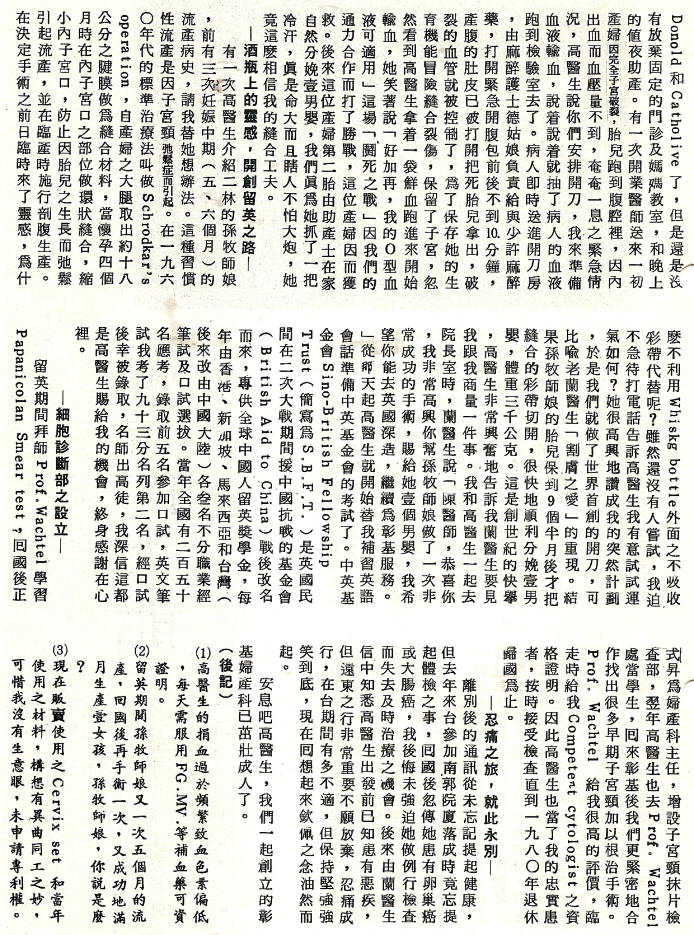 Donold 和 Catholive 了，但是還是沒
有放棄固定的門診及媽媽教室，和晚上
的值夜助產。有一次開業醫師送來一初
產婦因完全子宮破裂，胎兒跑到腹腔裡，因內
出血而血壓量不到，奄奄一息之緊急情
況，高醫生說你們安排開刀，我來準備
血液輸血，說着說着就抽了病人的血液
跑到檢驗室去了。病人即時送進開刀房
，由麻醉護士德姑娘負責給與少許麻醉
藥，打開緊急開腹包前後不到10.分鐘，
產腹的肚皮已被打開把死胎兒拿出，破
裂的血管就被控制了，爲了保存她的生
育機能冒險縫合裂傷，保留了子宮，忽
然看到高醫生拿着一袋鮮血跑進來開始
輸血，她笑著說「好加再，我的O型血
液可適用」這場「鬪死之戰」因我們的
通力合作而打了勝戰，這位產婦因而獲
救。後來這位產婦第二胎由助產士在家
自然分娩壹男嬰，我們眞爲她抓了一把
冷汗，眞是命大而且瞎人不怕大炮，她
竟這麼相信我的縫合工夫。
—酒瓶上的靈感，開創留英之路—
有一次高醫生介紹二林的孫牧師娘
，前有三次妊娠中期（五、六個月）的
流產病史，請我替她想辦法。這種習慣
性流產是因子宮頸弛鬆症而引起。在一九六
〇年代的標準治療法叫做 Schrodkar's
operation，自產婦之大腿取出約十八
公分之腱膜做爲縫合材料，當懷孕四個
月時在內子宮口之部位做環狀縫合，縮
小內子宮口，防止因胎兒之生長而弛鬆
引起流產，並在臨產時施行剖腹生產。
在決定手術之前日臨時來了靈感，爲什
麼不利用Whiskg bottle外面之不吸收
彩帶代替呢？雖然還沒有人嘗試，我迫
不急待打電話告訴高醫生我有意試試運
氣如何？她很高興地讚成我的突然計劃
，於是我們就做了世界首創的開刀，可
比喩老蘭醫生「割膚之愛」的重現。結
果孫牧師娘的胎兒保到9個半月後才把
縫合的彩帶切開，很快地順利分娩壹男
嬰，體重三千公克。這是創世紀的快擧
，高醫生非常興奮地告訴我蘭醫生要見
我跟我商量一件事。我和高醫生一起去
院長室時，蘭醫生說「陳醫師，恭喜你
，我非常高興你幫孫牧師娘做了一次非
常成功的手術，賜給她壹個男嬰，我希
望你能去英國深造，繼續爲彰基服務。
」從那天起高醫生就開始替我補習英語
會話準備中英基金會的考試了。中英基
金會 Sino-British Fellowship
Trust（簡寫爲 S.B.F.T.）是英國民
間在二次大戰期間援中國抗戰的基金會
（British Aid to China）戰後改名
而來，專供全球中國人留英獎學金，每
年由香港、新加坡、馬來西亞和台灣（
後來改由中國大陸）各叁名不分職業經
筆試及口試選拔。當年全國有二百五十
名應考，錄取前五名參加口試，英文筆
試我考了九十三分名列第二名，經口試
後幸被錄取，名師出高徒，我深信這都
是高醫生賜給我的機會，終身感謝在心
裡。
—細胞診斷部之設立—
留英期間拜師 Prof. Wachtel 學習
Papanicolan Smear test，囘國後正
式昇爲婦產科主任，增設子宮頸抹片檢
查部，翌年高醫生也去 Prof. Wachtel
處當學生，囘來彰基後我們更緊密地合
作找出很多早期子宮頸加以根治手術。
Prof. Wachtel 給我很高的評價，臨
走時給我 Competent cytologist 之資
格證明。因此高醫生也當了我的忠實患
者，按時接受檢查直到一九八〇年退休
歸國爲止。
—忍痛之旅，就此永別—
離別後的通訊從未忘記提起健康，
但去年來台參加南郭院廈落成時竟忘提
起體檢之事，囘國後忽傳她患有卵巢癌
或大腸癌，我後悔未強迫她做例行檢查
而失去及時治療之機會。後來由蘭醫生
信中知悉高醫生出發前已知患有惡疾，
但遠東之行非常重要不願放棄，忍痛成
行，在台期間有多不適，但保持堅強強
笑到底，現在囘想起來欽佩之念油然而
起。
安息吧高醫生，我們一起創立的彰
基婦產科已茁壯成人了。
（後記）
(1)高醫生的捐血過於頻繁致血色素偏低
，每天需服用FG. MV. 等補血藥可資
證明。
(2)留英期間孫牧師娘又一次五個月的流
產，回國後再手術一次，又成功地滿
月生產壹女孩，孫牧師娘，你說是麼
？
(3)現在販賣使用之Cervix set 和當年
使用之材料，構想有異曲同工之妙，
可惜我沒有生意眼，未申請專利權。